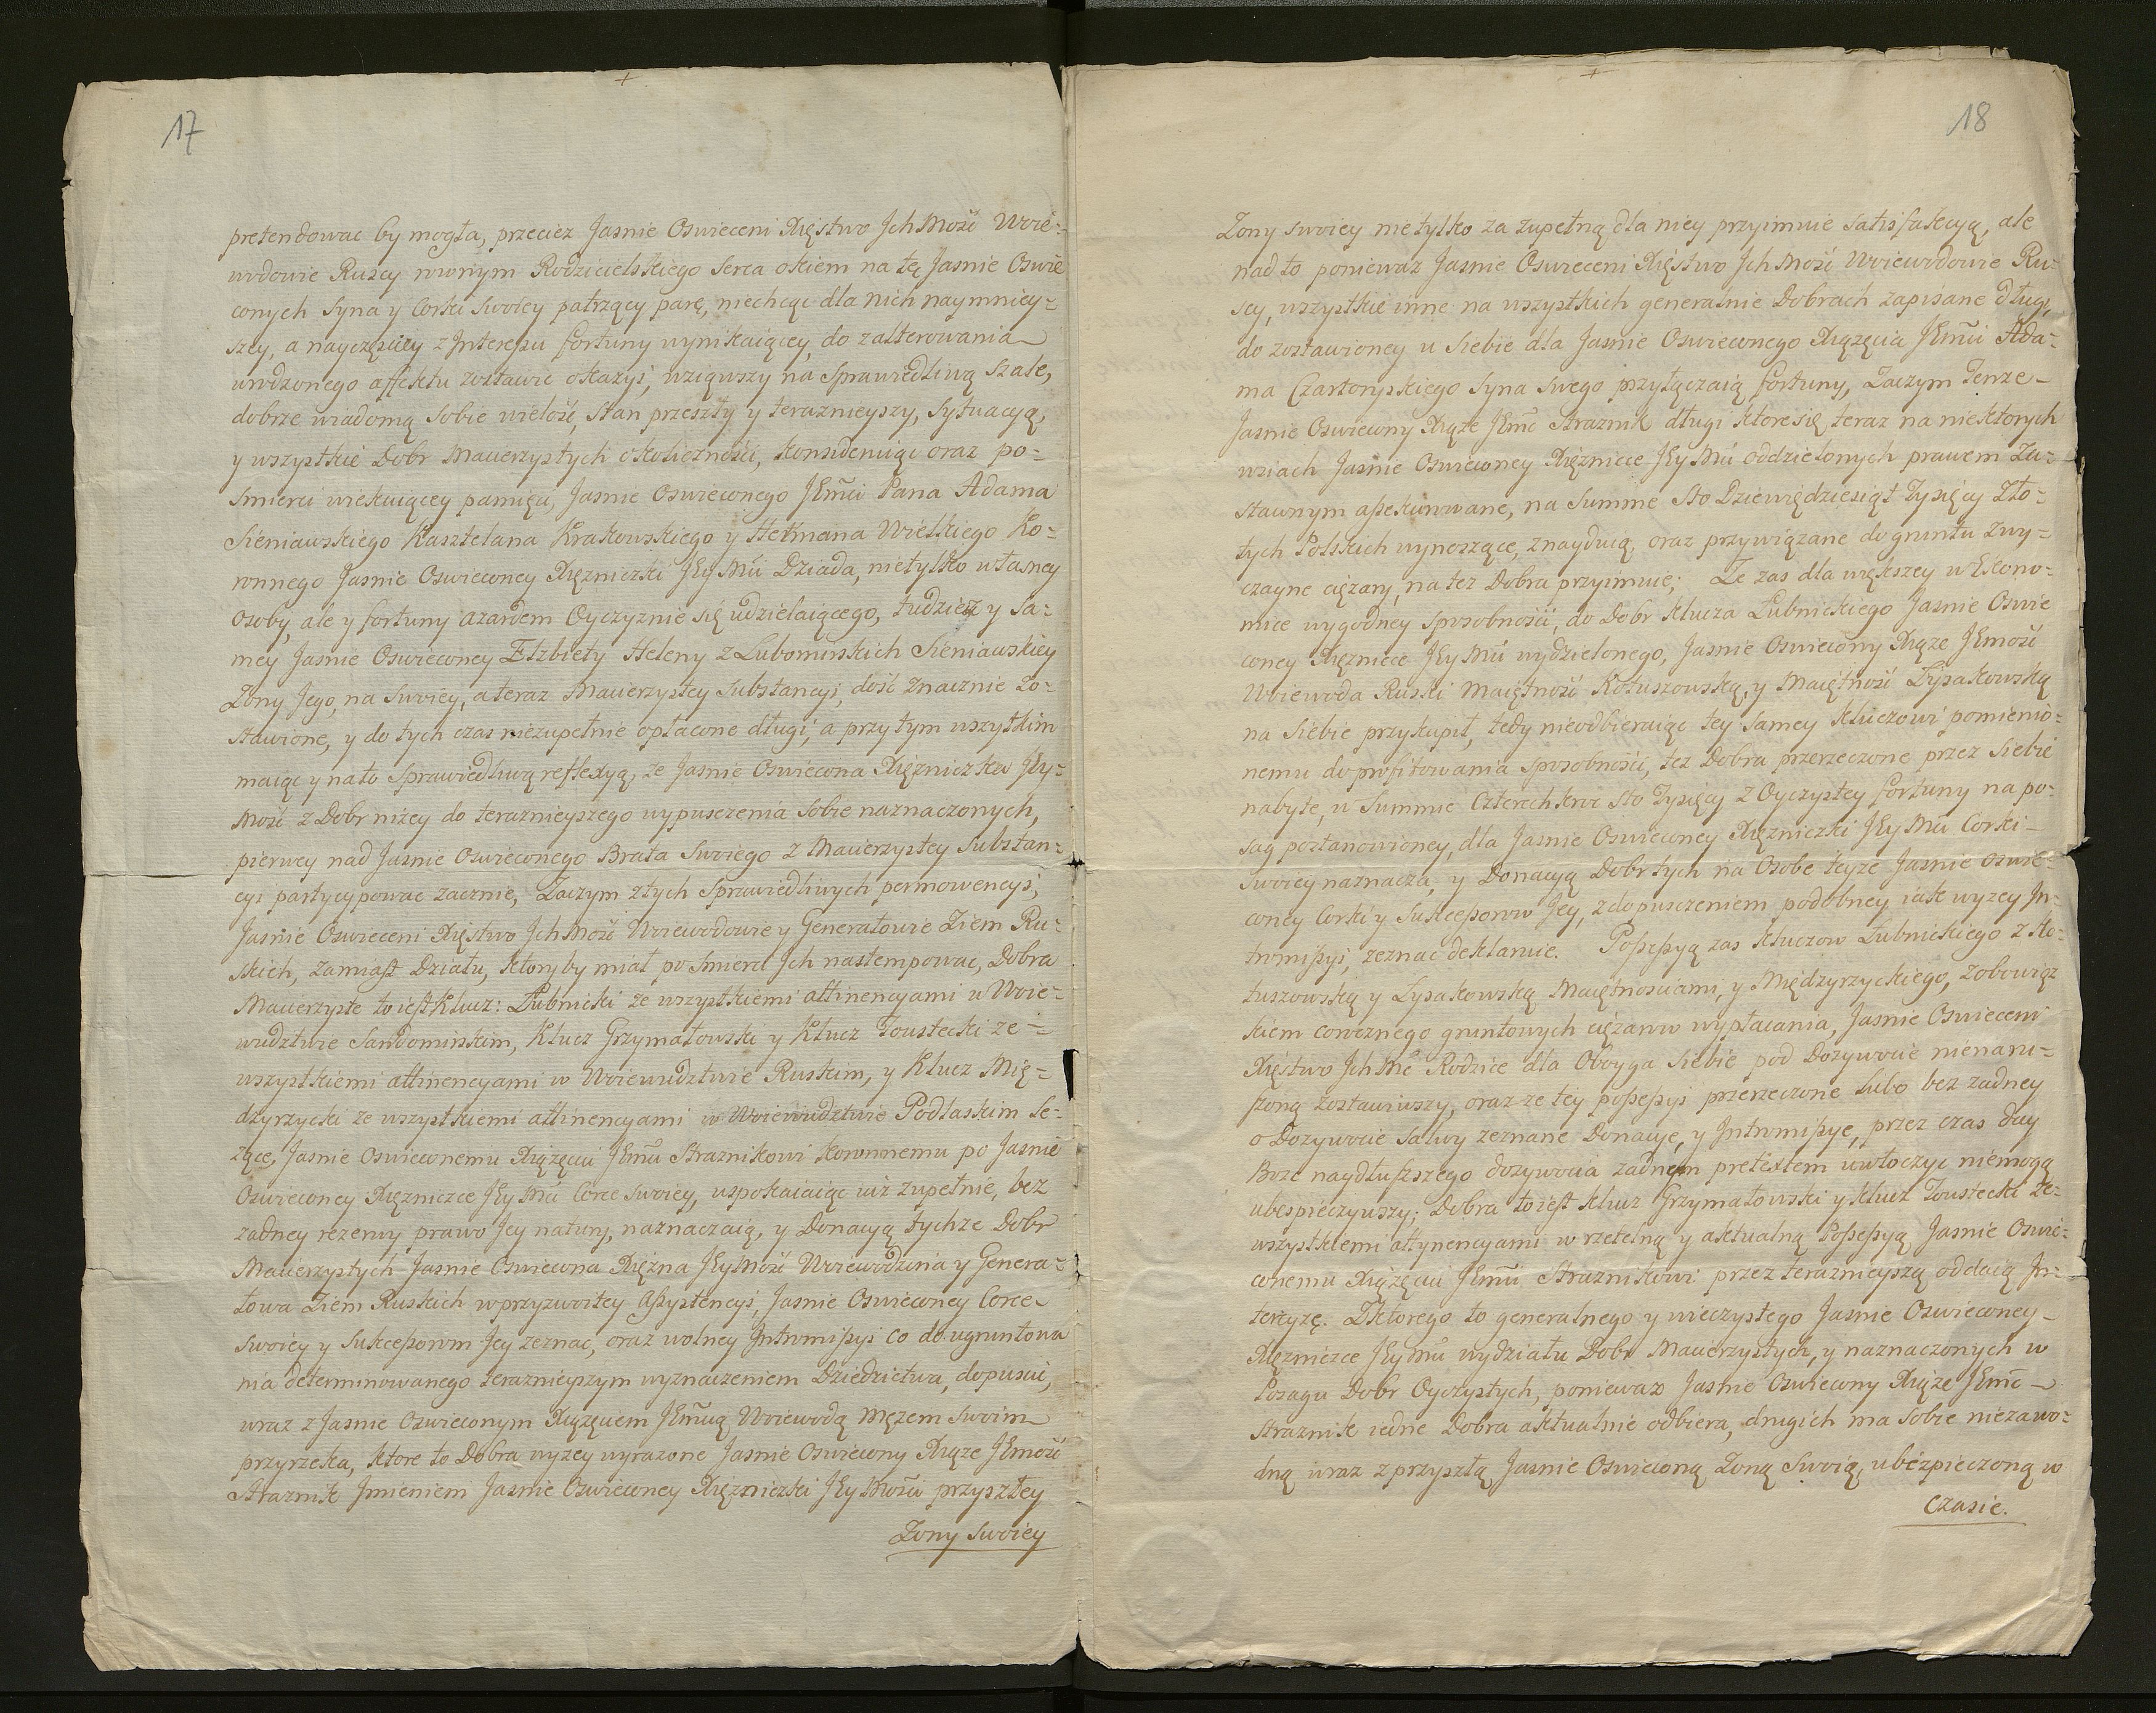 17
pretendowac by mogła, przeciez Jasnie Oswieceni Xięstwo Jch Mość Woie-
wodowie Ruscy rownym Rodzicielskiego Serca okiem na tę Jasnie Oswie
conych Syna y Corki Swoiey patrzący parę, niechcąc dla nich naymniey-
szey, a nayczęsciey z Jnteressu fortuny wynikaiącey, do zalterowania
urodzonego affektu zostawic okazyi, wziąwszy na Sprawiedliwą Szale,
dobrze wiadomą Sobie wielość, Stan przeszły y teraznieyszy, Sytuacyą,
y wszystkie Dobr Macierzystych okoliczności, konsideruiąc oraz po-
Smierci wiekuiącey pamięci, Jasnie Oswieconego JEm̃ci Pana Adama
Sieniawskiego Kasztelana Krakowskiego y Hetmana Wielkiego Ko-
ronnego Jasnie Oswieconey Xięzniczki JEy Mći Dziada, nietylko własney
Osoby, ale y fortuny azardem Oyczyznie się udzielaiącego, tudziez y Sa-
mey Jasnie Oswieconey Elzbiety Heleny z Lubomirskich Sieniawskiey
Zony Jego, na Swoiey, a teraz Macierzystey Substancyi, dość znacznie Zo-
stawione, y do tych czas niezupełnie opłacone długi, a przy tym wszytkim
maiąc y na to Sprawiedliwą reflexyą, ze Jasnie Oswiecona Xięzniczka JEy-
Mość z Dobr nizey do teraznieyszego wypusczenia Sobie naznaczonych,
pierwey nad Jasnie Oswieconego Brata Swoiego z Macierzystey Substan-
cyi partycypowac zacznie, Zaczym z tych Sprawiedliwych permowencyi,
Jasnie Oswieceni Xięstwo Jch Mość Woiewodowie y Generałowie Ziem Ru-
skich, zamiast Działu, ktory by miał po Smierci Jch nastempowac, Dobra
Macierzyste to iest Klucz: Łubnicki ze wszystkiemi attinencyami w Woie-
wudztwie Sandomirskim, Klucz Grzymałowski y Klucz Toustecki ze-
wszystkiemi attinencyami w Woiewudztwie Ruskim, y Klucz Mię-
dzyrzycki ze wszystkiemi attinencyami w Woiewudztwie Podlaskim le-
zące, Jasnie Oswieconemu Xiązęciu JEm̃u Straznikowi Koronnemu po Jasnie
Oswieconey Xięzniczce JEy Mći Corce Swoiey, uspokaiaiąc iuz zupełnie, bez
zadney rezerwy prawo Jey natury, naznaczaią, y Donacyą tychze Dobr
Macierzystych Jasnie Oswiecona Xięzna JEy Mość Woiewodzina y Genera-
łowa Ziem Ruskich w przyzwoitey Assystencyi, Jasnie Oswieconey Corce
Swoiey y Sukcessorom Jey zeznac, oraz wolney Jntromissyi co do ugruntowa
nia determinowanego teraznieyszym wyznaczeniem Dziedzictwa, dopuscic,
wraz z Jasnie Oswieconym Xiązęciem JEm̃cią Woiewodą Męzem Swoim
przyrzeka, ktore to Dobra wyzey wyrazone Jasnie Oswiecony Xiąze JEmość
Straznik Jmieniem Jasnie Oswieconey Xięzniczki JEy Mości przyszłey
Zony Swoiey
18
Zony swoiey nietylko za zupełną dla niey przyimuie satisfakcyą, ale
nad to poniewaz Jasnie Oswieceni Xięstwo Jch Mość Woiewodowie Ru-
scy, wszystkie inne na wszystkich generalnie Dobrach zapisane długi,
do zostawioney u Siebie dla Jasnie Oswieconego Xiązęcia JEm̃ci Ada-
ma Czartoryskiego Syna Swego przyłączaią fortuny, Zaczym Tenze-
Jasnie Oswiecony Xiąze JEm̃c Straznik długi ktore się teraz na niektorych
wsiach Jasnie Oswieconey Xięznicce JEy Mći oddzielonych prawem Za-
stawnym assekurowane, na Summe Sto Dziewiędziesiąt Tysięcy Zło-
tych Polskich wynoszące, znayduią, oraz przywiązane do gruntu zwy-
czayne cięzary, na tez Dobra przyimuie; Ze zas dla większey w Ekono-
mice wygodney Sposobności, do Dobr Klucza Łubnickiego Jasnie Oswie
coney Xięznicce JEy Mći wydzielonego, Jasnie Oswiecony Xiąze JEmość
Woiewoda Ruski Maiętność Kotuszowską, y Maiętność Łysakowską
na Siebie przykupił, tedy nieodbieraiąc tey samey Kluczowi pomienio-
nemu do profitowania Sposobności, tez Dobra przerzeczone przez Siebie
nabyte, w Summie Czterechkroc Sto Tysięcy z Oyczystey fortuny na po-
sag postanowioney, dla Jasnie Oswieconey Xięzniczki JEy Mći Corki-
Swoiey naznacza, y Donacyą Dobr tych na Osobe teyze Jasnie Oswie-
coney Corki y Sukcessorow Jey, z dopusczeniem podobney iak wyzey Jn-
tromissyi, zeznac deklaruie. Possessyą zas Kluczow Łubnickiego z Ko-
tuszowską y Łysakowską Maiętnosciami, y Międzyrzyckiego, z obowiąz
kiem corocznego gruntowych cięzarow wypłacania, Jasnie Oswieceni
Xięstwo Jch Mć Rodzice dla Oboyga Siebie pod Dozywocie nienaru-
szoną zostawiwszy, oraz ze tey possessyi przerzeczone lubo bez zadney
o Dozywocie Salwy zeznane Donacye, y Jntromissye, przez czas day
Boze naydłuzszego dozywocia zadnym pretextem uwłoczyc niemogą
ubespieczywszy; Dobra to iest Klucz Grzymałowski y Klucz Toustecki ze-
wszystkiemi attynencyami w rzetelną y aktualną Possessyą Jasnie Oswie-
conemu Xiązęciu JEm̃ci Straznikowi przez teraznieyszą oddaią Jn-
tercyzę. Z ktorego to generalnego y wieczystego Jasnie Oswieconey-
Xięzniczce JEy Mći wydziału Dobr Macierzystych, y naznaczonych w
Posagu Dobr Oyczystych, poniewaz Jasnie Oswiecony Xiąze JEm̃c-
Straznik iedne Dobra aktualnie odbiera, drugich ma Sobie niezawo-
dną wraz z przyszłą Jasnie Oswieconą Zoną Swoią, ubezpieczoną w
Czasie.